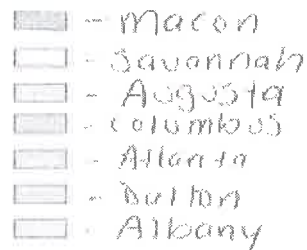 - Macon
- Savannah
- Augusta
- Columbus
- Atlanta
- Dalton
- Albany